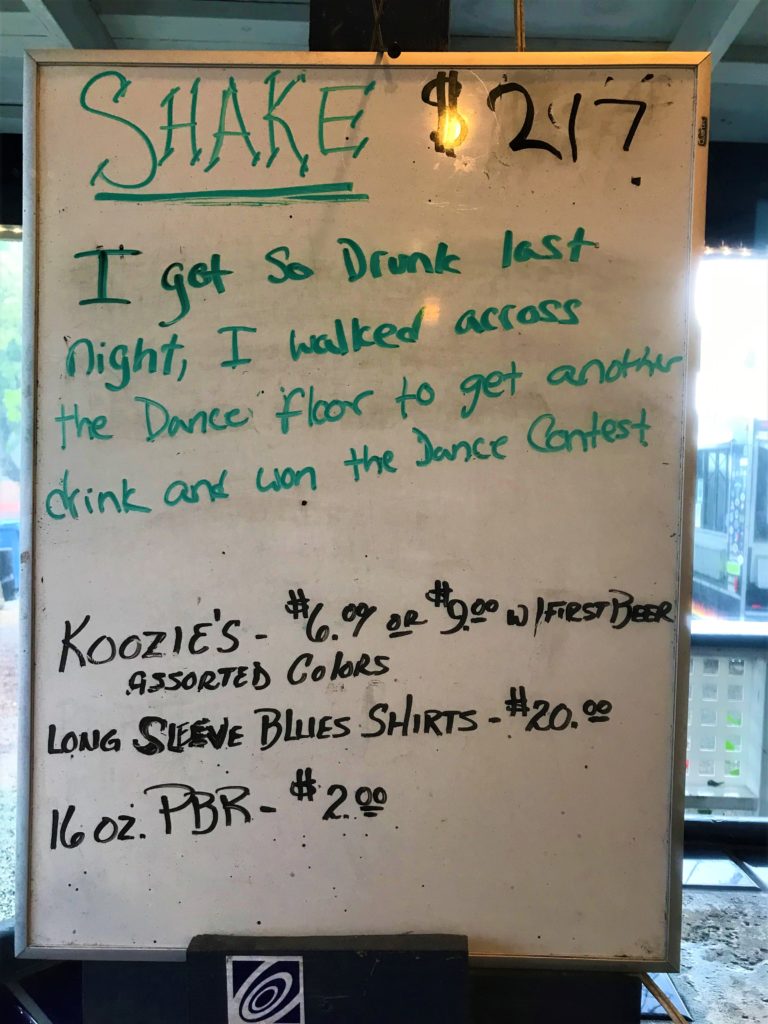 SHAKE $217
I got So Drunk last
night, I walked across
the Dance floor to get another
drink and won the Dance Contest
KOOZIE'S - $6.00 OR $9.00 W/FIRST BEER
ASSORTED COLORS
LONG SLEEVE BLUES SHIRTS - $20.00
16 OZ. PBR - $2.00